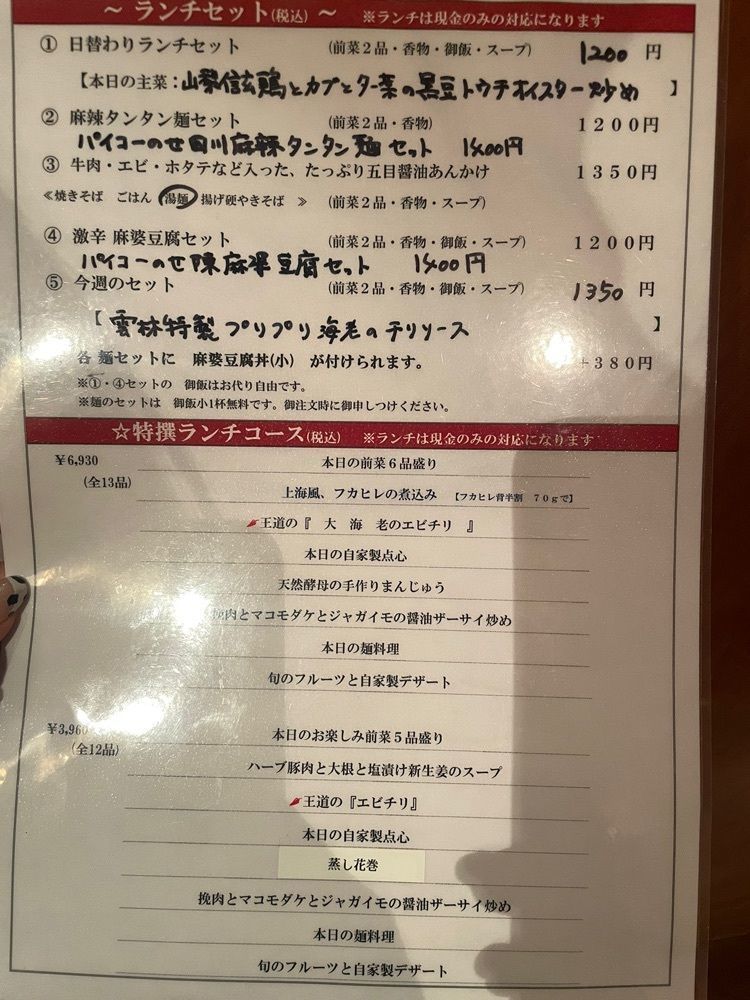 ～ ランチセット(税込) ～ ※ランチは現金のみの対応になります
① 日替わりランチセット (前菜2品・香物・御飯・スープ) 1200 円
【本日の主菜：山梨信玄鶏とカブとター菜の黒豆トウチオイスター炒め 】
② 麻辣タンタン麺セット (前菜2品・香物) 1200円
パイコーのせ四川麻辣タンタン麺セット 1400円
③ 牛肉・エビ・ホタテなど入った、たっぷり五目醤油あんかけ 1350円
≪焼きそば ごはん 湯麺 揚げ硬やきそば ≫ (前菜2品・香物・スープ)
④ 激辛 麻婆豆腐セット (前菜2品・香物・御飯・スープ) 1200円
パイコーのせ陳麻婆豆腐セット 1400円
⑤ 今週のセット (前菜2品・香物・御飯・スープ) 1350 円
【 雲林特製プリプリ海老のチリソース 】
各 麺セットに 麻婆豆腐丼(小) が付けられます。 +380円
※①・④セットの 御飯はお代り自由です。
※麺のセットは 御飯小1杯無料です。御注文時に御申しつけください。
☆特撰ランチコース(税込) ※ランチは現金のみの対応になります
￥6,930 本日の前菜6品盛り
(全13品)
上海風、フカヒレの煮込み 【フカヒレ背半割 70gで】
王道の『 大 海 老のエビチリ 』
本日の自家製点心
天然酵母の手作りまんじゅう
挽肉とマコモダケとジャガイモの醤油ザーサイ炒め
本日の麺料理
旬のフルーツと自家製デザート
￥3,960 本日のお楽しみ前菜5品盛り
(全12品)
ハーブ豚肉と大根と塩漬け新生姜のスープ
王道の『エビチリ』
本日の自家製点心
蒸し花巻
挽肉とマコモダケとジャガイモの醤油ザーサイ炒め
本日の麺料理
旬のフルーツと自家製デザート